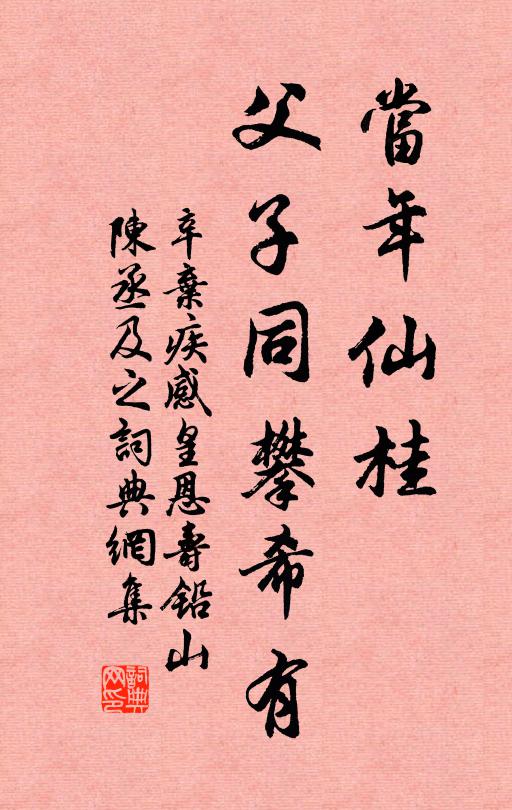 當年仙桂
父子同攀希有
辛棄疾感皇恩壽鉛山
陳丞及之詞典網集
詞典
网印